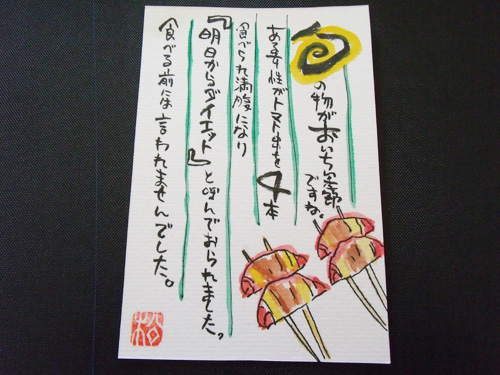 旬の物がおいち季節ですね。
ある女性がトマト串を4本
食べられ満腹になり
『明日からダイエット』と呼んでおられました。
食べる前には言われませんでした。